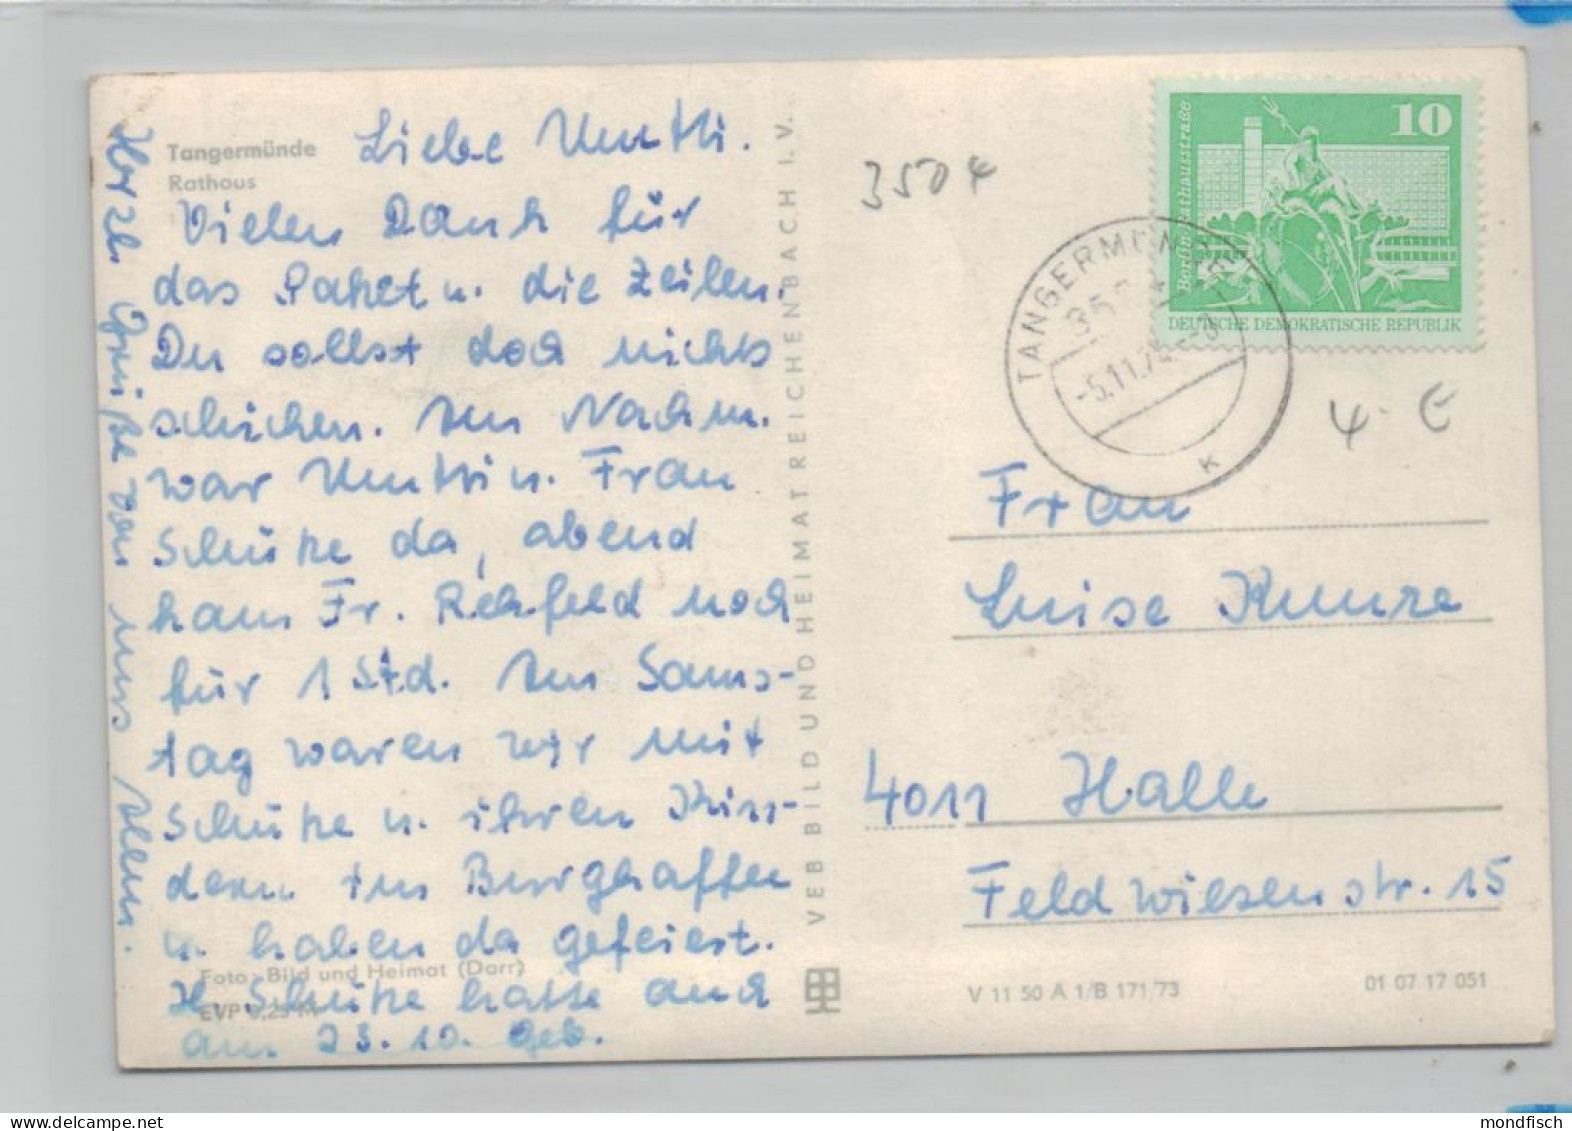 Tangermünde
Rathaus
Liebe Mutti.
Vielen Dank für
das Paket u. die Zeilen.
Du sollst doch nichts
schicken. Am Nachm.
war Mutti u. Frau
Schütze da, abend
kam Fr. Rehfeld noch
für 1 Std. Am Sams-
tag waren wir mit
Schütze u. ihren Kin-
dern im Burgkaffee
u. haben da gefeiert.
H. Schütze hatte auch
am 23. 10. Geb.
Herzl. Grüße von uns allen.
Foto: Bild und Heimat (Darr)
EVP 0,25 M
VEB BILD UND HEIMAT REICHENBACH I. V.
3504
10
Berlin, Rathausstraße
DEUTSCHE DEMOKRATISCHE REPUBLIK
TANGERMÜNDE
-5.11.74
k
4.- €
Frau
Luise Kunze
4011 Halle
Feldwiesenstr. 15
V 11 50 A 1/B 171/73
01 07 17 051
mondfisch